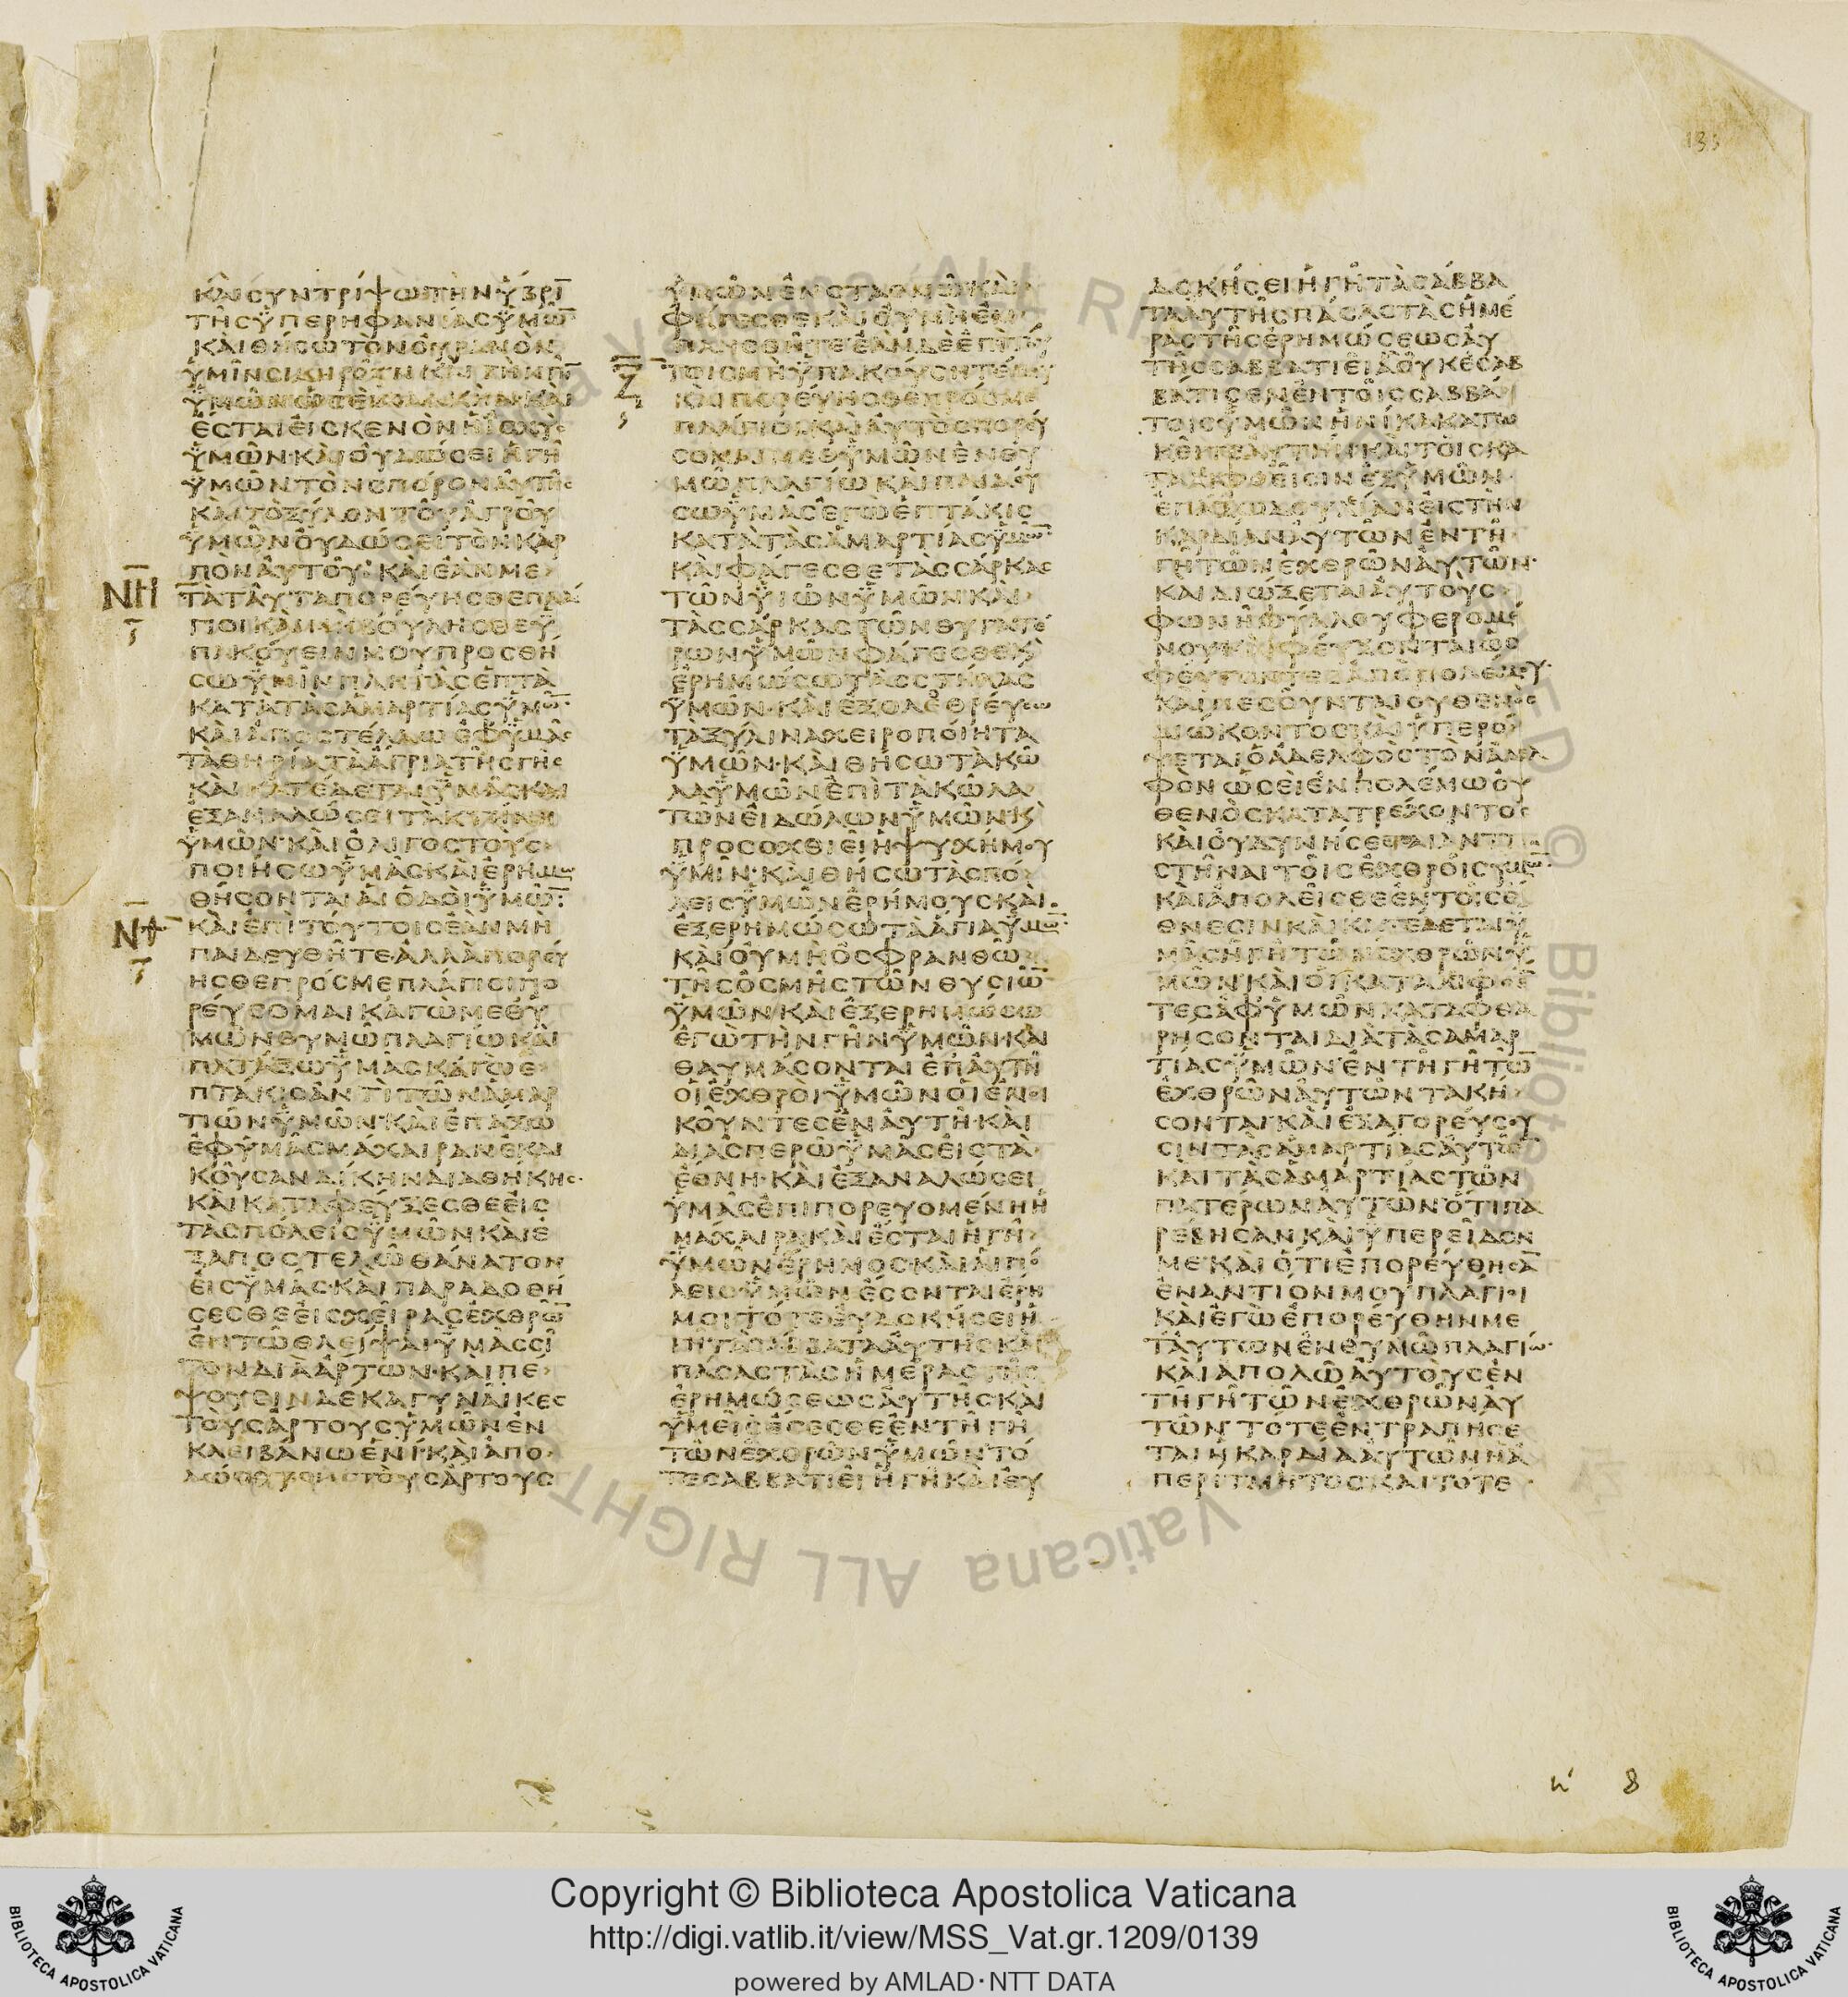 ΚΑΙϹΥΝΤΡΙΨΩΤΗΝΥΒΡΙ̅
ΤΗϹΥΠΕΡΗΦΑΝΙΑϹΥΜΩ̅
ΚΑΙΘΗϹΩΤΟΝΟΥΡΑΝΟΝ
ΥΜΙΝϹΙΔΗΡΟΥΝΚΑΙΤΗΝΓΗ̅
ΥΜΩΝΩϹΕΙΧΑΛΚΗΝΚΑΙ
ΕϹΤΑΙΕΙϹΚΕΝΟΝΗΙϹΧΥϹ
ΥΜΩΝ·ΚΑΙΟΥΔΩϹΕΙΗΓΗ
ΥΜΩΝΤΟΝϹΠΟΡΟΝΑΥΤΗϹ
ΚΑΙΤΟΞΥΛΟΝΤΟΥΑΓΡΟΥ
ΥΜΩΝΟΥΔΩϹΕΙΤΟΝΚΑΡ
ΠΟΝΑΥΤΟΥ·ΚΑΙΕΑΝΜΕ
ΝΗ ΤΑΤΑΥΤΑΠΟΡΕΥΗϹΘΕΠΛΑ
ΓΙΟΙΚΑΙΜΗΒΟΥΛΗϹΘΕΥ
ΠΑΚΟΥΕΙΝΜΟΥΠΡΟϹΘΗ
ϹΩΥΜΙΝΠΛΗΓΑϹΕΠΤΑ
ΚΑΤΑΤΑϹΑΜΑΡΤΙΑϹΥΜΩ̅·
ΚΑΙΑΠΟϹΤΕΛΛΩΕΦΥΜΑϹ
ΤΑΘΗΡΙΑΤΑΑΓΡΙΑΤΗϹΓΗϹ
ΚΑΙΚΑΤΕΔΕΤΑΙΥΜΑϹΚΑΙ
ΕΞΑΝΑΛΩϹΕΙΤΑΚΤΗΝΗ
ΥΜΩΝ·ΚΑΙΟΛΙΓΟϹΤΟΥϹ
ΠΟΙΗϹΩΥΜΑϹΚΑΙΕΡΗΜΩ
ΘΗϹΟΝΤΑΙΑΙΟΔΟΙΥΜΩ̅·
ΝΘ ΚΑΙΕΠΙΤΟΥΤΟΙϹΕΑΝΜΗ
ΠΑΙΔΕΥΘΗΤΕΑΛΛΑΠΟΡΕΥ
ΗϹΘΕΠΡΟϹΜΕΠΛΑΓΙΟΙΠΟ
ΡΕΥϹΟΜΑΙΚΑΓΩΜΕΘΥ
ΜΩΝΘΥΜΩΠΛΑΓΙΩΚΑΙ
ΠΑΤΑΞΩΥΜΑϹΚΑΓΩΕ
ΠΤΑΚΙϹΑΝΤΙΤΩΝΑΜΑΡ
ΤΙΩΝΥΜΩΝ·ΚΑΙΕΠΑΞΩ
ΕΦΥΜΑϹΜΑΧΑΙΡΑΝΕΚΔΙ
ΚΟΥϹΑΝΔΙΚΗΝΔΙΑΘΗΚΗϹ·
ΚΑΙΚΑΤΑΦΕΥΞΕϹΘΕΕΙϹ
ΤΑϹΠΟΛΕΙϹΥΜΩΝΚΑΙΕ
ΞΑΠΟϹΤΕΛΩΘΑΝΑΤΟΝ
ΕΙϹΥΜΑϹ·ΚΑΙΠΑΡΑΔΟΘΗ
ϹΕϹΘΕΕΙϹΧΕΙΡΑϹΕΧΘΡΩ̅
ΕΝΤΩΘΛΕΙΨΑΙΥΜΑϹϹΙ
ΤΟΝΔΙΑΑΡΤΩΝ·ΚΑΙΠΕ
ΨΟΥϹΙΝΔΕΚΑΓΥΝΑΙΚΕϹ
ΤΟΥϹΑΡΤΟΥϹΥΜΩΝΕΝ
ΚΛΕΙΒΑΝΩΕΝΙ·ΚΑΙΑΠΟ
ΔΩϹΟΥϹΙΝΤΟΥϹΑΡΤΟΥϹ
ΥΜΩΝΕΝϹΤΑΘΜΩΚΑΙ
ΦΑΓΕϹΘΕΚΑΙΟΥΜΗΕΜ
ΠΛΗϹΘΗΤΕΕΑΝΔΕΕΠΙΤΟΥ
Ξ ΤΟΙϹΜΗΥΠΑΚΟΥϹΗΤΕΜΟΥ
ΚΑΙΠΟΡΕΥΗϹΘΕΠΡΟϹΜΕ
ΠΛΑΓΙΟΙΚΑΙΑΥΤΟϹΠΟΡΕΥ
ϹΟΜΑΙΜΕΘΥΜΩΝΕΝΘΥ
ΜΩΠΛΑΓΙΩΚΑΙΠΑΙΔΕΥ
ϹΩΥΜΑϹΕΓΩΕΠΤΑΚΙϹ
ΚΑΤΑΤΑϹΑΜΑΡΤΙΑϹΥΜΩ̅·
ΚΑΙΦΑΓΕϹΘΕΤΑϹϹΑΡΚΑϹ
ΤΩΝΥΙΩΝΥΜΩΝΚΑΙ
ΤΑϹϹΑΡΚΑϹΤΩΝΘΥΓΑΤΕ
ΡΩΝΥΜΩΝΦΑΓΕϹΘΕΚ
ΕΡΗΜΩϹΩΤΑϹϹΤΗΛΑϹ
ΥΜΩΝ·ΚΑΙΕΞΟΛΕΘΡΕΥϹΩ
ΤΑΞΥΛΙΝΑΧΕΙΡΟΠΟΙΗΤΑ
ΥΜΩΝ·ΚΑΙΘΗϹΩΤΑΚΩ
ΛΑΥΜΩΝΕΠΙΤΑΚΩΛΑ
ΤΩΝΕΙΔΩΛΩΝΥΜΩΝ·Κ
ΠΡΟϹΟΧΘΙΕΙΗΨΥΧΗΜΟΥ
ΥΜΙΝ·ΚΑΙΘΗϹΩΤΑϹΠΟ
ΛΕΙϹΥΜΩΝΕΡΗΜΟΥϹΚΑΙ
ΕΞΕΡΗΜΩϹΩΤΑΑΓΙΑΥΜΩ̅·
ΚΑΙΟΥΜΗΟϹΦΡΑΝΘΩ
ΤΗϹΟϹΜΗϹΤΩΝΘΥϹΙΩ̅
ΥΜΩΝΚΑΙΕΞΕΡΗΜΩϹΩ
ΕΓΩΤΗΝΓΗΝΥΜΩΝ·ΚΑΙ
ΘΑΥΜΑϹΟΝΤΑΙΕΠΑΥΤΗ
ΟΙΕΧΘΡΟΙΥΜΩΝΟΙΕΝΟΙ
ΚΟΥΝΤΕϹΕΝΑΥΤΗ·ΚΑΙ
ΔΙΑϹΠΕΡΩΥΜΑϹΕΙϹΤΑ
ΕΘΝΗ·ΚΑΙΕΞΑΝΑΛΩϹΕΙ
ΥΜΑϹΕΠΙΠΟΡΕΥΟΜΕΝΗΗ
ΜΑΧΑΙΡΑΚΑΙΕϹΤΑΙΗΓΗ
ΥΜΩΝΕΡΗΜΟϹΚΑΙΑΙΠΟ
ΛΕΙϹΥΜΩΝΕϹΟΝΤΑΙΕΡΗ
ΜΟΙΤΟΤΕΕΥΔΟΚΗϹΕΙΗ
ΓΗΤΑϹΑΒΒΑΤΑΑΥΤΗϹΚΑΙ
ΠΑϹΑϹΤΑϹΗΜΕΡΑϹΤΗϹ
ΕΡΗΜΩϹΕΩϹΑΥΤΗϹΚΑΙ
ΥΜΕΙϹΕϹΕϹΘΕΕΝΤΗΓΗ
ΤΩΝΕΧΘΡΩΝΥΜΩΝΤΟ
ΤΕϹΑΒΒΑΤΙΕΙΗΓΗΚΑΙΕΥ
ΔΟΚΗϹΕΙΗΓΗΤΑϹΑΒΒΑ
ΤΑΑΥΤΗϹΠΑϹΑϹΤΑϹΗΜΕ
ΡΑϹΤΗϹΕΡΗΜΩϹΕΩϹΑΥ
ΤΗϹϹΑΒΒΑΤΙΕΙΑΟΥΚΕϹΑΒ
ΒΑΤΙϹΕΝΕΝΤΟΙϹϹΑΒΒΑ
ΤΟΙϹΥΜΩΝΗΝΙΚΑΚΑΤΩ
ΚΕΙΤΕΑΥΤΗΝ·ΚΑΙΤΟΙϹΚΑ
ΤΑΛΕΙΦΘΕΙϹΙΝΕΞΥΜΩΝ
ΕΠΑΞΩΔΟΥΛΙΑΝΕΙϹΤΗΝ
ΚΑΡΔΙΑΝΑΥΤΩΝΕΝΤΗ
ΓΗΤΩΝΕΧΘΡΩΝΑΥΤΩΝ·
ΚΑΙΔΙΩΞΕΤΑΙΑΥΤΟΥϹ
ΦΩΝΗΦΥΛΛΟΥΦΕΡΟΜΕ
ΝΟΥΚΑΙΦΕΥΞΟΝΤΑΙΩϹ
ΦΕΥΓΟΝΤΕϹΑΠΟΠΟΛΕΜΟΥ·
ΚΑΙΠΕϹΟΥΝΤΑΙΟΥΘΕΝΟϹ
ΔΙΩΚΟΝΤΟϹΚΑΙΥΠΕΡΟ
ΨΕΤΑΙΟΑΔΕΛΦΟϹΤΟΝΑΔΕΛ
ΦΟΝΩϹΕΙΕΝΠΟΛΕΜΩΟΥ
ΘΕΝΟϹΚΑΤΑΤΡΕΧΟΝΤΟϹ
ΚΑΙΟΥΔΥΝΗϹΕϹΘΑΙΑΝΤΙ
ϹΤΗΝΑΙΤΟΙϹΕΧΘΡΟΙϹΥΜΩ̅·
ΚΑΙΑΠΟΛΕΙϹΘΕΕΝΤΟΙϹΕ
ΘΝΕϹΙΝΚΑΙΚΑΤΕΔΕΤΑΙΥ
ΜΑϹΗΓΗΤΩΝΕΧΘΡΩΝΥ
ΜΩΝ·ΚΑΙΟΙΚΑΤΑΛΙΦΘΕ̅
ΤΕϹΑΦΥΜΩΝΚΑΤΑΦΘΑ
ΡΗϹΟΝΤΑΙΔΙΑΤΑϹΑΜΑΡ
ΤΙΑϹΥΜΩΝΕΝΤΗΓΗΤΩ̅
ΕΧΘΡΩΝΑΥΤΩΝΤΑΚΗ
ϹΟΝΤΑΙ·ΚΑΙΕΞΑΓΟΡΕΥϹΟΥ
ϹΙΝΤΑϹΑΜΑΡΤΙΑϹΑΥΤΩ̅
ΚΑΙΤΑϹΑΜΑΡΤΙΑϹΤΩΝ
ΠΑΤΕΡΩΝΑΥΤΩΝΟΤΙΠΑ
ΡΕΒΗϹΑΝΚΑΙΥΠΕΡΕΙΔΟΝ
ΜΕΚΑΙΟΤΙΕΠΟΡΕΥΘΗϹΑ̅
ΕΝΑΝΤΙΟΝΜΟΥΠΛΑΓΙΟΙ
ΚΑΙΕΓΩΕΠΟΡΕΥΘΗΝΜΕ
ΤΑΥΤΩΝΕΝΘΥΜΩΠΛΑΓΙΩ·
ΚΑΙΑΠΟΛΩΑΥΤΟΥϹΕΝ
ΤΗΓΗΤΩΝΕΧΘΡΩΝΑΥ
ΤΩΝΤΟΤΕΕΝΤΡΑΠΗϹΕ
ΤΑΙΗΚΑΡΔΙΑΑΥΤΩΝΗΑ
ΠΕΡΙΤΜΗΤΟϹΚΑΙΤΟΤΕ
Copyright © Biblioteca Apostolica Vaticana
http://digi.vatlib.it/view/MSS_Vat.gr.1209/0139
powered by AMLAD·NTT DATA
BIBLIOTECA APOSTOLICA VATICANA
BIBLIOTECA APOSTOLICA VATICANA